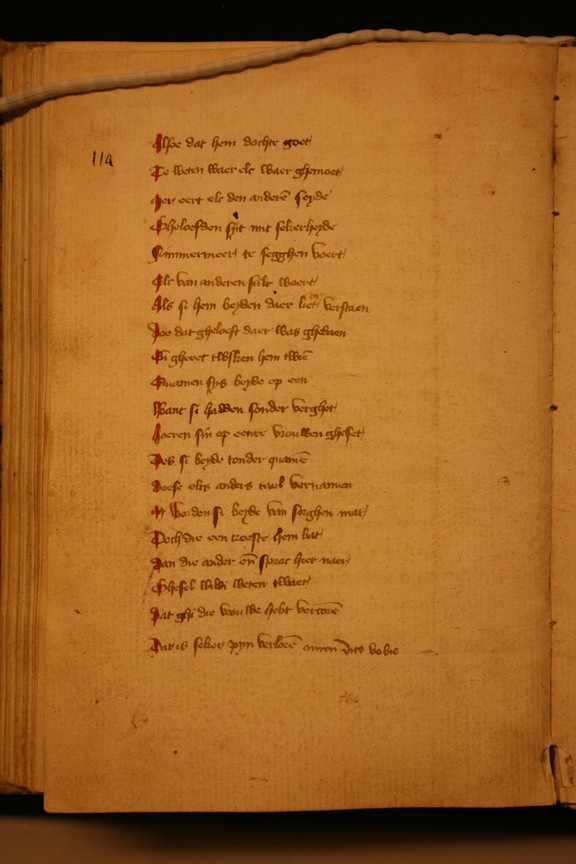 114
Alsoe dat hem dochte goet
Te weten waer elc waer ghemoet
Mer eert elc den anderē seyde
Gheloefden sijt mit sekerheyde
Nummermeer te segghen voert
Elc van anderen sulc woert
Als si hem beyden daer liet verstaen
Doe dat gheloeft daer was ghedaen
En gheret twisken hem twiē
Quamen sijs beyde op een
Want si hadden sonder verghet
Hoeren sin op eenre vrouwen gheset
Des si beyde tonder quamē
Doese elcs anders wel vernamen
worden si beyde van sorghen mat
Doch die een troeste hem bat
Dan die ander eñ sprac hier naer
Ghesel weten twaer
Dat ghi die vrouwe hebt vercorē
Dat is seker pijn verlorē amen dico vobis